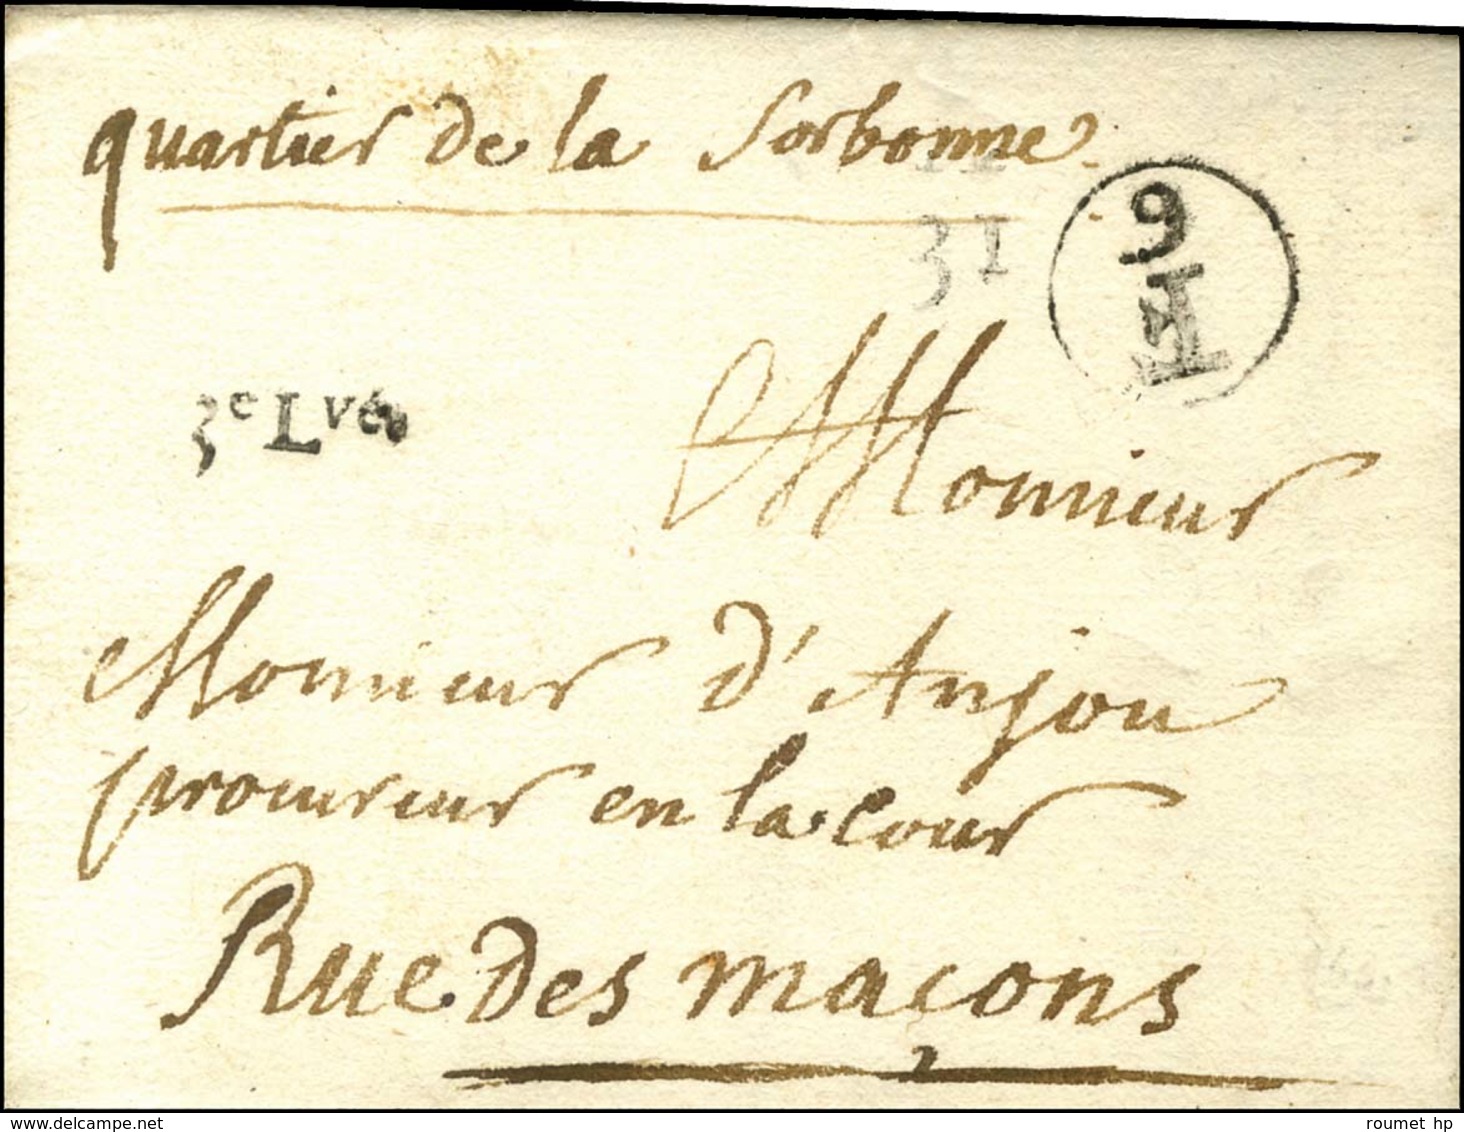 quartier de la Sorbonne.
31
9
3e Lvée
Monieur
Monieur d'Anjou
procureur en la cour
Rue des maçons
roumet hp